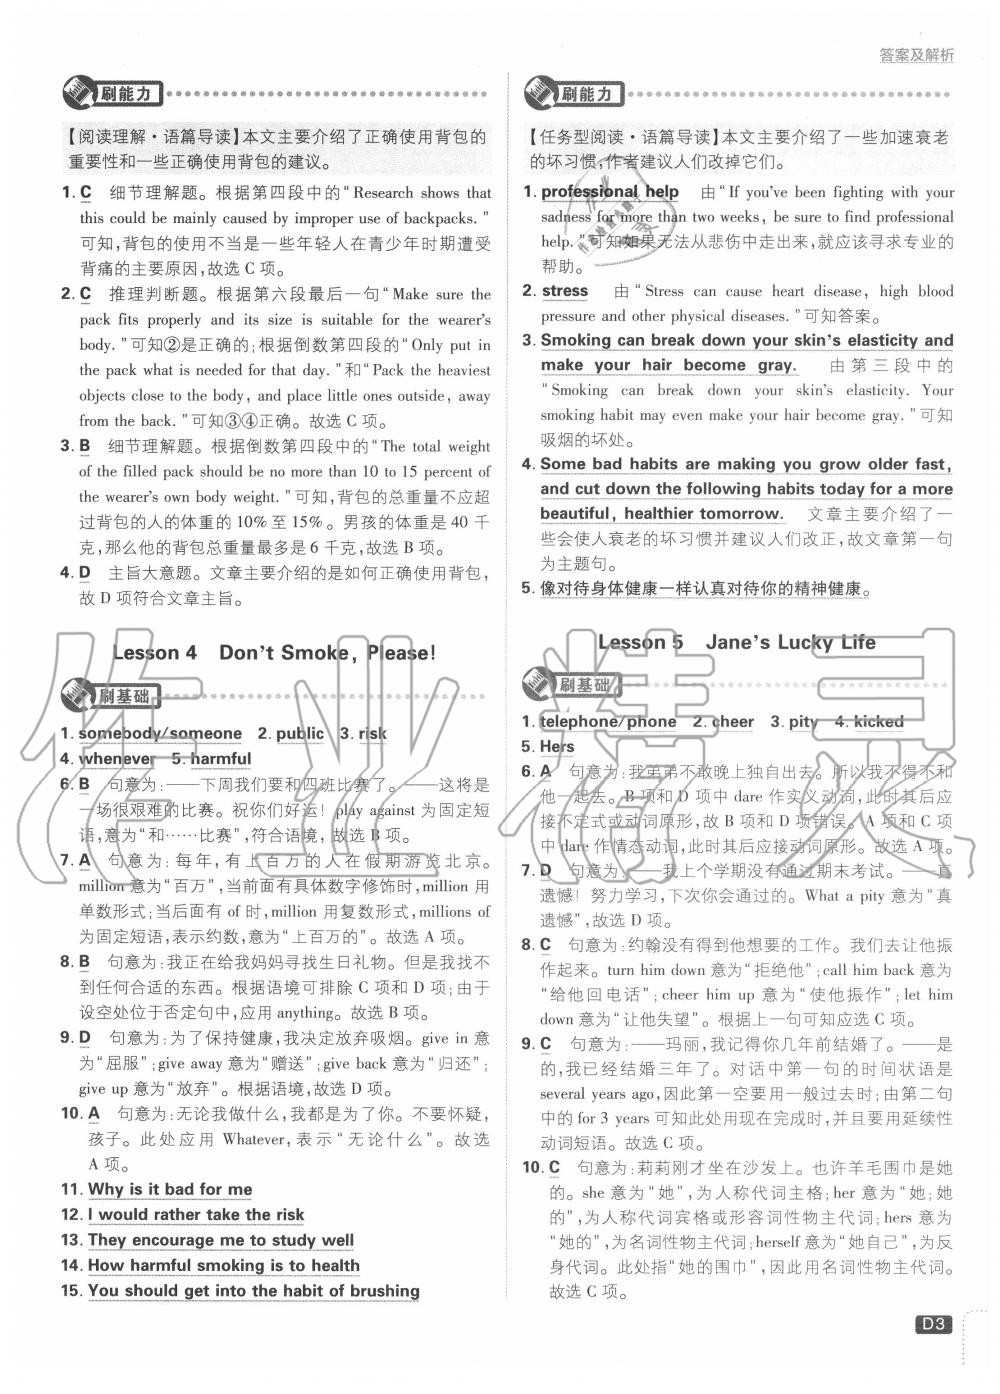 答案及解析
刷能力
【阅读理解·语篇导读】本文主要介绍了正确使用背包的
重要性和一些正确使用背包的建议。
1. C 细节理解题。根据第四段中的“Research shows that
this could be mainly caused by improper use of backpacks.”
可知,背包的使用不当是一些年轻人在青少年时期遭受
背痛的主要原因,故选 C 项。
2. C 推理判断题。根据第六段最后一句“Make sure the
pack fits properly and its size is suitable for the wearer's
body.”可知②是正确的;根据倒数第四段的“Only put in
the pack what is needed for that day.”和“Pack the heaviest
objects close to the body, and place little ones outside, away
from the back.”可知③④正确。故选 C 项。
3. B 细节理解题。根据倒数第四段中的“The total weight
of the filled pack should be no more than 10 to 15 percent of
the wearer's own body weight.”可知,背包的总重量不应超
过背包的人的体重的 10%至 15%。男孩的体重是 40 千
克,那么他的背包总重量最多是 6 千克,故选 B 项。
4. D 主旨大意题。文章主要介绍的是如何正确使用背包,
故 D 项符合文章主旨。
Lesson 4 Don't Smoke, Please!
刷基础
1. somebody/someone 2. public 3. risk
4. whenever 5. harmful
6. B 句意为:——下周我们要和四班比赛了。——这将是
一场很艰难的比赛。祝你们好运! play against 为固定短
语,意为“和……比赛”,符合语境,故选 B 项。
7. A 句意为:每年,有上百万的人在假期游览北京。
million 意为“百万”,当前面有具体数字修饰时,million 用
单数形式;当后面有 of 时,million 用复数形式,millions of
为固定短语,表示约数,意为“上百万的”。故选 A 项。
8. B 句意为:我正在给我妈妈寻找生日礼物。但是我找不
到任何合适的东西。根据语境可排除 C 项和 D 项;由于
设空处位于否定句中,应用 anything。故选 B 项。
9. D 句意为:为了保持健康,我决定放弃吸烟。give in 意
为“屈服”;give away 意为“赠送”;give back 意为“归还”;
give up 意为“放弃”。根据语境,故选 D 项。
10. A 句意为:无论我做什么,我都是为了你。不要怀疑,
孩子。此处应用 Whatever,表示“无论什么”。故选
A 项。
11. Why is it bad for me
12. I would rather take the risk
13. They encourage me to study well
14. How harmful smoking is to health
15. You should get into the habit of brushing
刷能力
【任务型阅读·语篇导读】本文主要介绍了一些加速衰老
的坏习惯,作者建议人们改掉它们。
1. professional help 由“If you've been fighting with your
sadness for more than two weeks, be sure to find professional
help.”可知如果无法从悲伤中走出来,就应该寻求专业的
帮助。
2. stress 由“Stress can cause heart disease, high blood
pressure and other physical diseases.”可知答案。
3. Smoking can break down your skin's elasticity and
make your hair become gray. 由第三段中的
“Smoking can break down your skin's elasticity. Your
smoking habit may even make your hair become gray.”可知
吸烟的坏处。
4. Some bad habits are making you grow older fast,
and cut down the following habits today for a more
beautiful, healthier tomorrow. 文章主要介绍了一
些会使人衰老的坏习惯并建议人们改正,故文章第一句
为主题句。
5. 像对待身体健康一样认真对待你的精神健康。
Lesson 5 Jane's Lucky Life
刷基础
1. telephone/phone 2. cheer 3. pity 4. kicked
5. Hers
6. A 句意为:我弟弟不敢晚上独自出去。所以我不得不和
他一起去。B 项和 D 项中 dare 作实义动词,此时其后应
接不定式或动词原形,故 B 项和 D 项错误。A 项和 C 项
中 dare 作情态动词,此时其后应接动词原形。故选 A 项。
7. D 句意为:——我上个学期没有通过期末考试。——真
遗憾! 努力学习,下次你会通过的。What a pity 意为“真
遗憾”,故选 D 项。
8. C 句意为:约翰没有得到他想要的工作。我们去让他振
作起来。turn him down 意为“拒绝他”;call him back 意为
“给他回电话”;cheer him up 意为“使他振作”;let him
down 意为“让他失望”。根据上一句可知应选 C 项。
9. C 句意为:——玛丽,我记得你几年前结婚了。——是
的,我已经结婚三年了。对话中第一句的时间状语是
several years ago,因此第一空要用一般过去时;由第二句
中的 for 3 years 可知此处用现在完成时,并且要用延续性
动词短语。故选 C 项。
10. C 句意为:莉莉刚才坐在沙发上。也许羊毛围巾是她
的。she 意为“她”,为人称代词主格;her 意为“她;她
的”,为人称代词宾格或形容词性物主代词;hers 意为
“她的”,为名词性物主代词;herself 意为“她自己”,为反
身代词。此处指“她的围巾”,因此用名词性物主代词。
故选 C 项。
D3
作业精灵